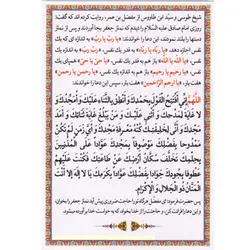 شیخ طوسی و سیّد ابن طاووس از مفضّل بن عمر، روایت کرده اند که گفت:
روزی امام صادق علیه السلام را دیدم که نماز جعفر بجا آوردند و پس از آن
دستها را بلند نمودند، این دعا را خواندند: «یا رَبِّ یا رَبِّ» به اندازه ی که یک
نفس، «یا رَبّاهُ یا رَبّاهُ» به قدر یک نفس، «رَبِّ رَبِّ» به اندازه ی یک
نفس، «یا اَللهُ یا اَللهُ» به قدر یک نفس، «یا حَیُّ یا حَیُّ» همپای یک
نفس، «یا رَحیمُ یا رَحیمُ» باز هم به اندازه یک نفس، «یا رَحمنُ یا رَحمنُ»
هفت مرتبه، «یا اَرحَمَ الرّاحِمینَ» هفت مرتبه، این دعا را خواندند:
اَللّهُمَّ اِنّی اَفْتَتِحُ الْقَوْلَ بِحَمْدِکَ وَ اَنْطِقُ بِالثَّناءِ عَلَیْکَ وَ اُمَجِّدُکَ وَ
لا غایَةَ لِمَدْحِکَ وَ اُثْنی عَلَیْکَ وَ مَنْ یَبْلُغُ غایَةَ ثَنائِکَ وَ اَمَدَ
مَجْدِکَ وَ اَنّی لِخَلیقَتِکَ کُنْهُ مَعْرِفَةِ مَجْدِکَ وَ اَیُّ زَمَنٍ لَمْ تَکُنْ
مَمْدوحاً بِفَضْلِکَ مَوْصوفاً بِمَجْدِکَ عَوّاداً عَلَی الْمُذْنِبینَ
بِحِلْمِکَ تَخَلَّفَ سُکّانُ اَرْضِکَ عَنْ طاعَتِکَ فَکُنْتَ عَلَیْهِمْ
عَطوفاً بِجودِکَ جَواداً بِفَضْلِکَ عَوّاداً بِکَرَمِکَ یا لا اِلهَ اِلّا اَنْتَ
الْمَنّانُ ذُو الْجَلالِ وَ الْاِکْرامِ.
پس حضرت فرمود: ای مفضّل هرگاه تو را حاجت ضروری پیش آید نماز جعفر را بخوان،
و این دعا را قرائت کن، و حاجتت را از خدا بخواه که به خواست خدا برآورده میشود.